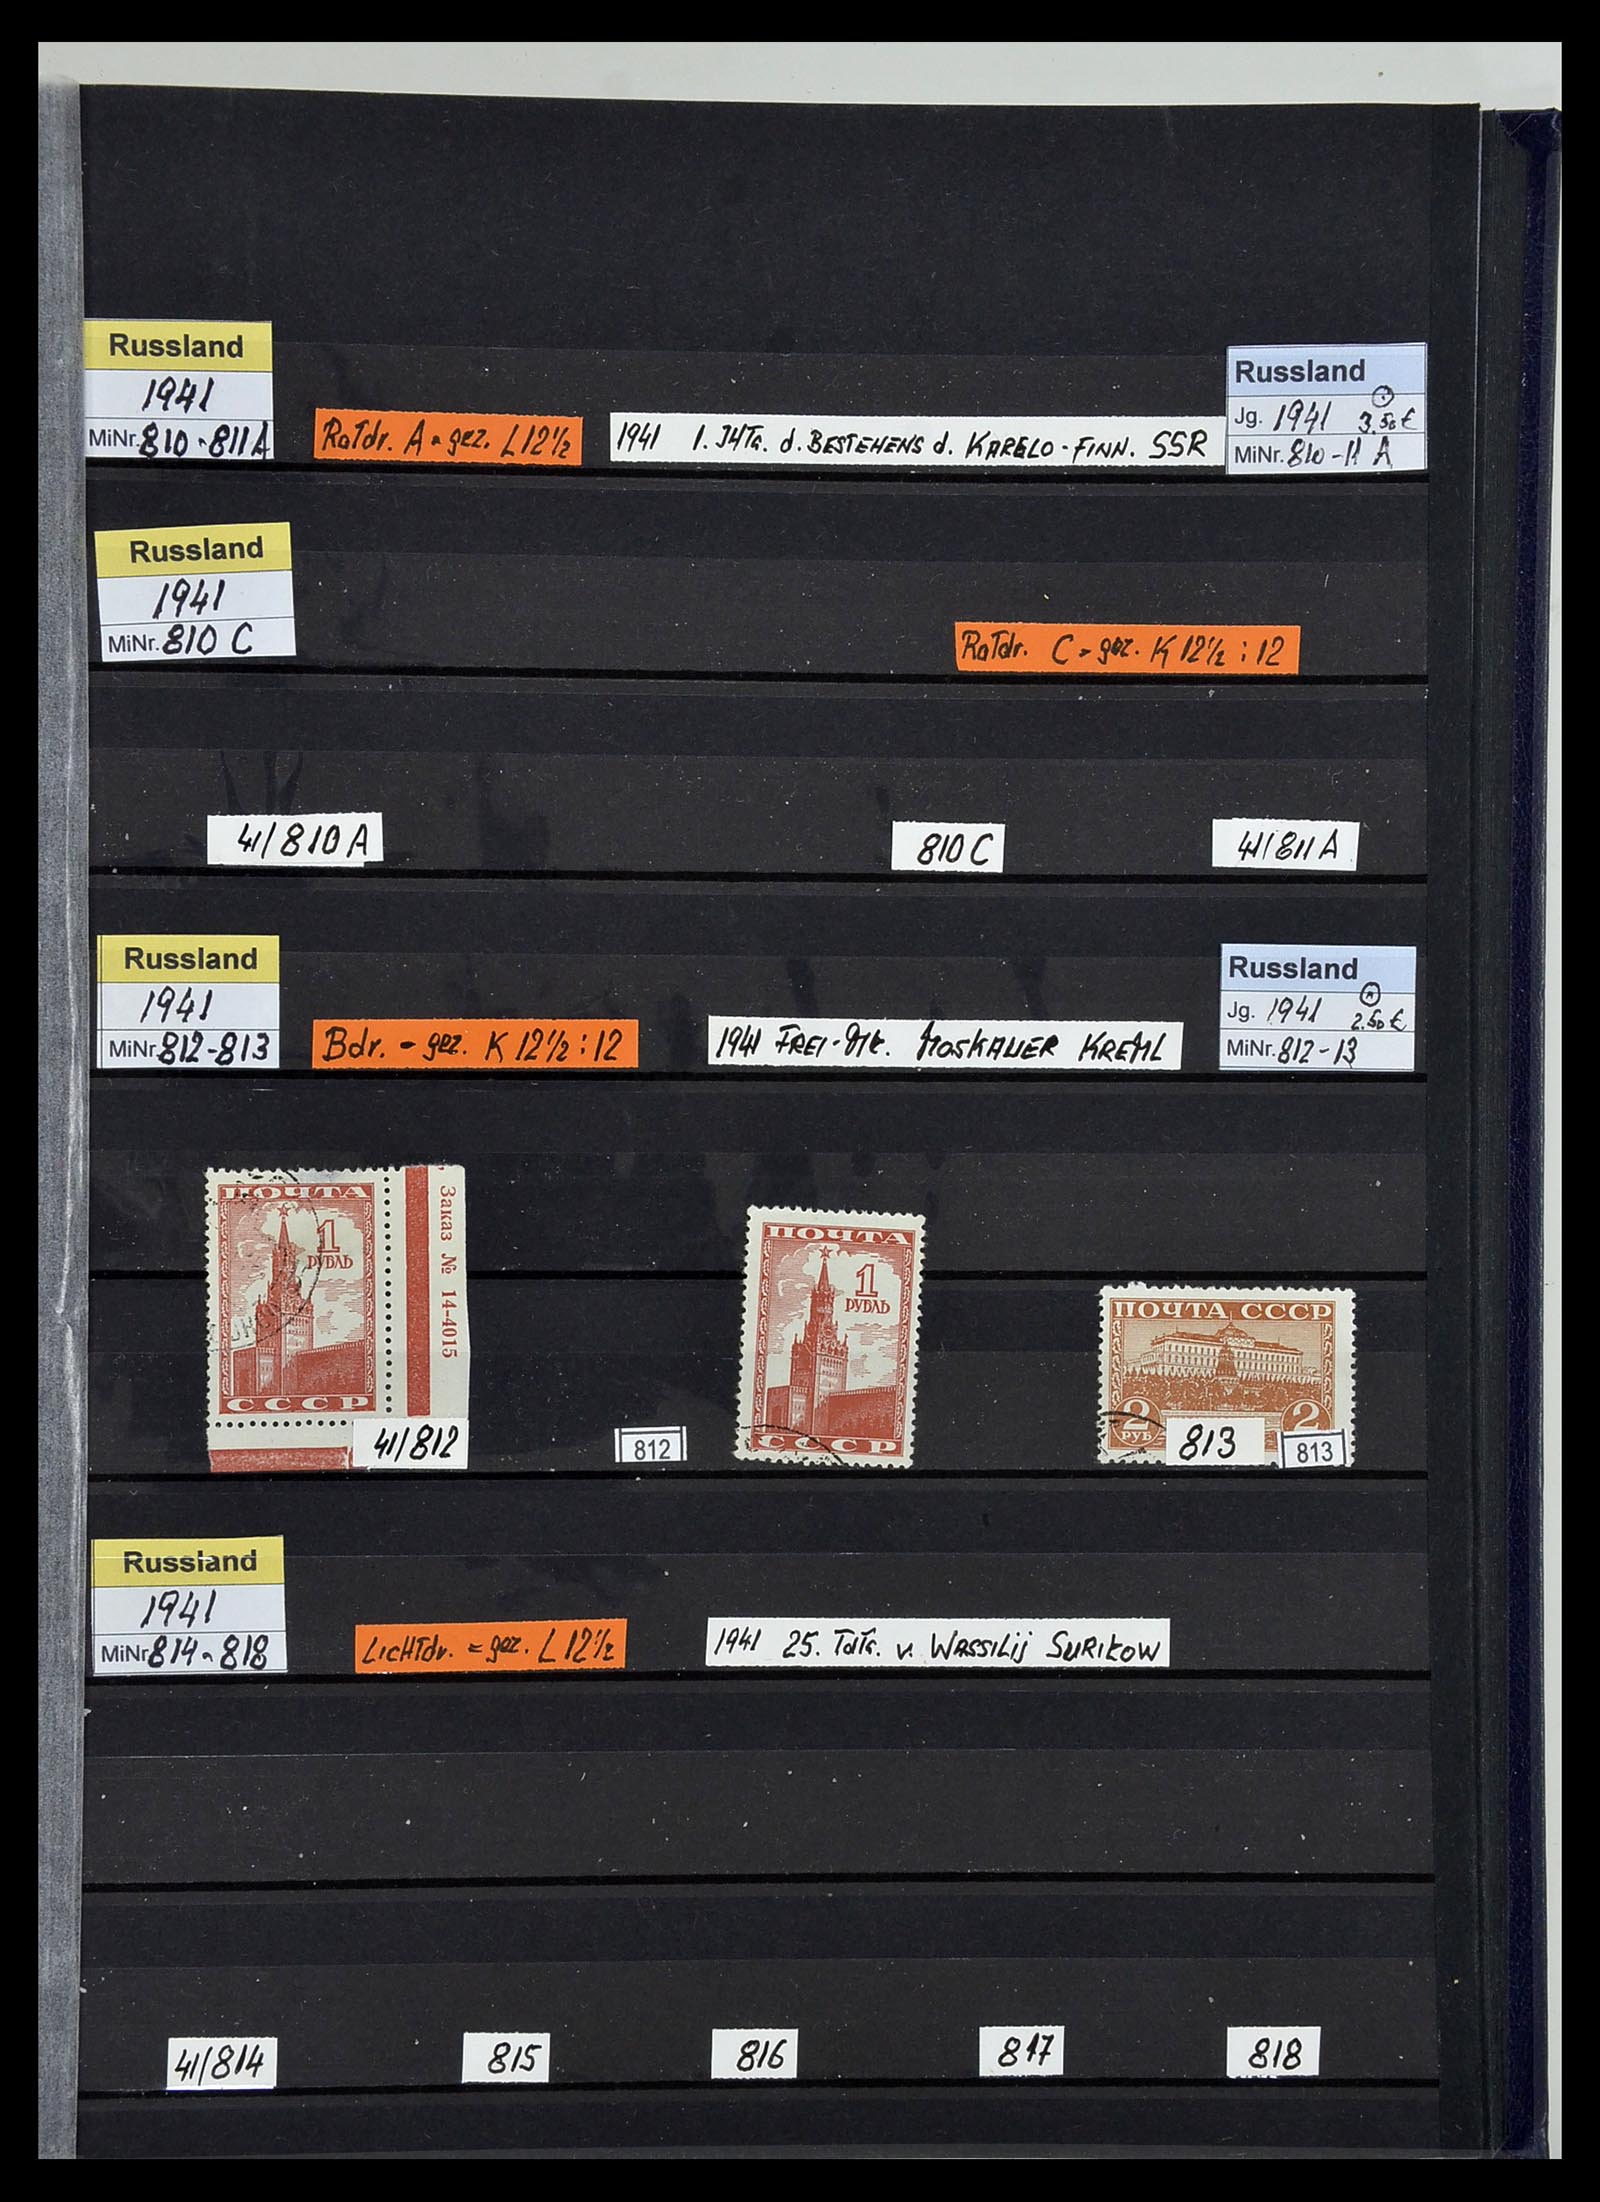 Russland
1941
MiNr. 810-811A
RaTdr. A = gez. L 12½
1941 1. J4Tg. d. BESTEHENS d. KARELO-FINN. SSR
Russland
Jg. 1941 3.50 €
MiNr. 810-11 A
Russland
1941
MiNr. 810 C
RaTdr. C = gez. K 12½ : 12
41/810 A
810 C
41/811 A
Russland
1941
MiNr. 812-813
Bdr. = gez. K 12½ : 12
1941 FREI-Mk. MOSKAUER KREML
Russland
Jg. 1941 2.50 €
MiNr. 812-13
ПОЧТА
1
РУБЛЬ
СССР
Заказ № 14-4015
41/812
812
ПОЧТА
1
РУБЛЬ
СССР
ПОЧТА СССР
2
РУБ
2
813
813
Russland
1941
MiNr. 814-818
LICHTdr. = gez. L 12½
1941 25. TdTg. v. WASSILIJ SURIKOW
41/814
815
816
817
818